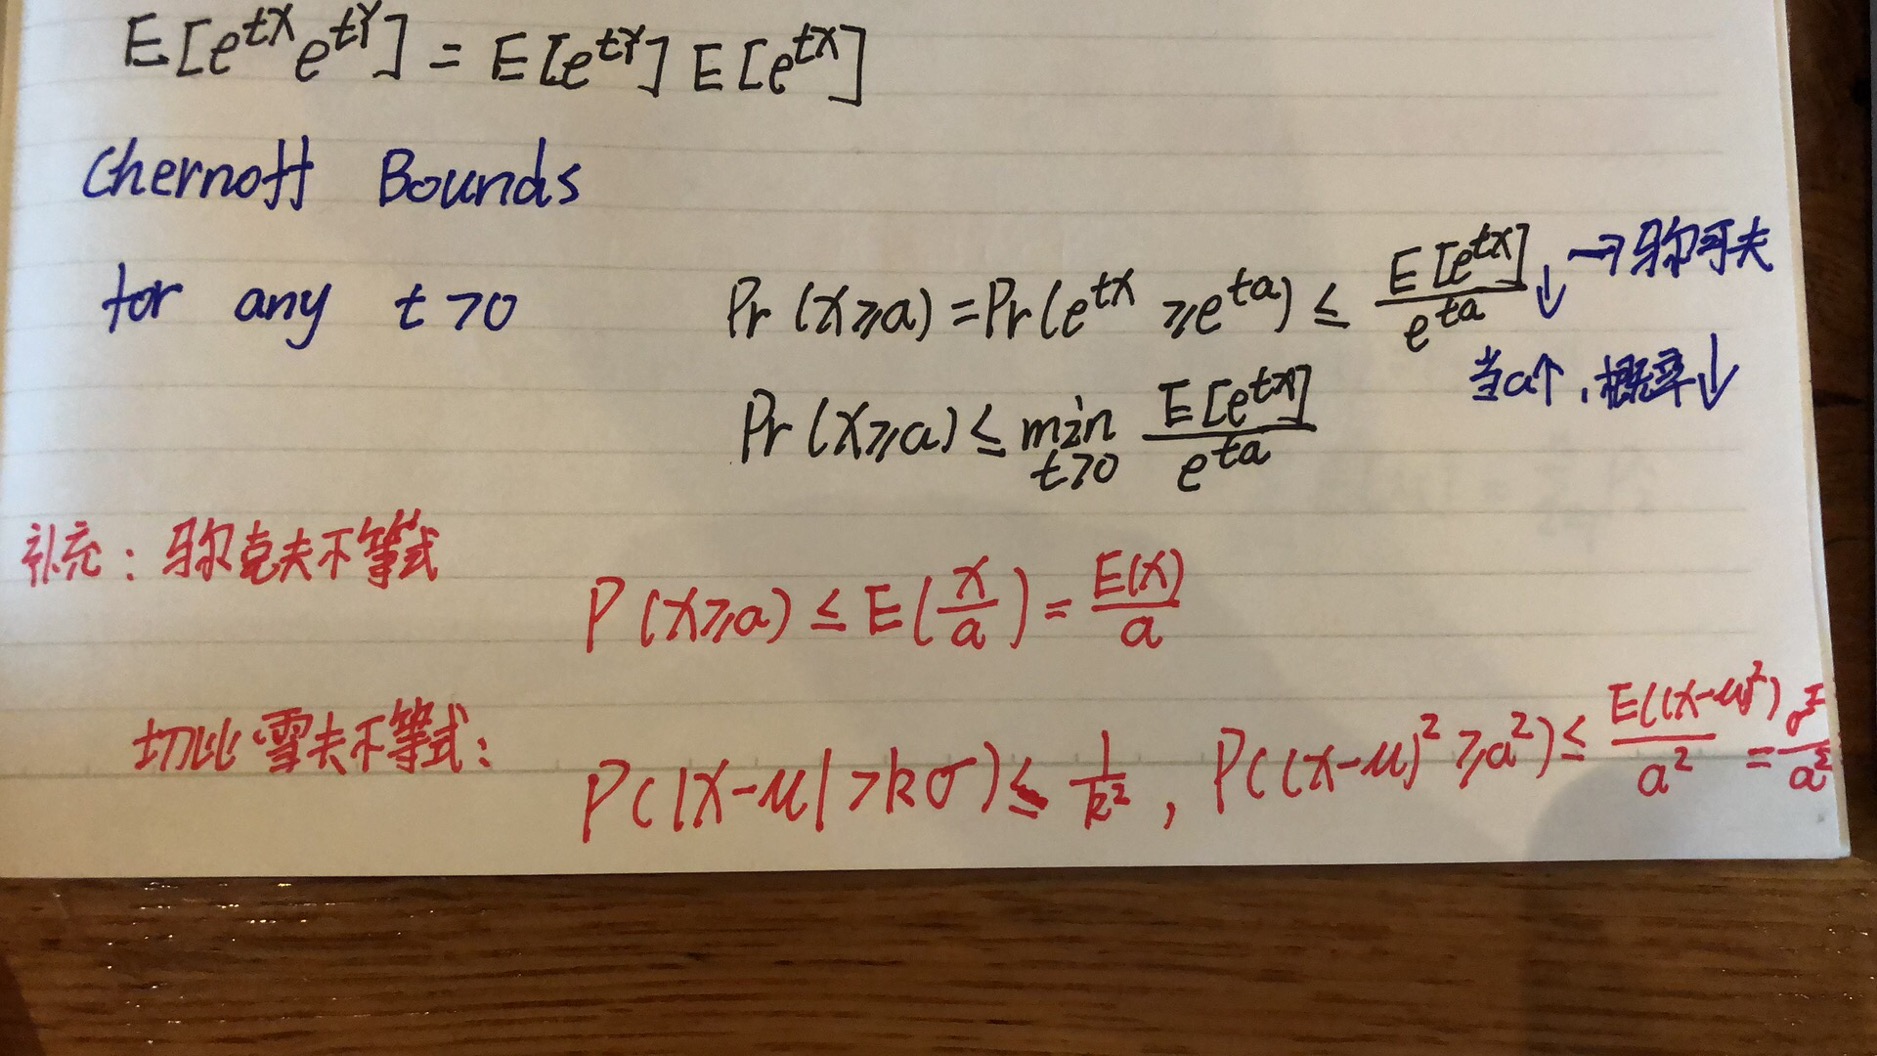 E[e^{tX} e^{tY}] = E[e^{tY}] E[e^{tX}]
Chernoff Bounds
for any t>0 Pr(X≥a) = Pr(e^{tX} ≥ e^{ta}) ≤ \frac{E[e^{tX}]}{e^{ta}} ↓ → 马尔可夫
当a↑, 概率↓
Pr(X≥a) ≤ min_{t>0} \frac{E[e^{tX}]}{e^{ta}}
补充: 马尔克夫不等式
P(X≥a) ≤ E(\frac{X}{a}) = \frac{E(X)}{a}
切比雪夫不等式:
P(|X-μ|>kσ) ≤ \frac{1}{k^2}, P((X-μ)^2 ≥ a^2) ≤ \frac{E((X-μ)^2)}{a^2} = \frac{σ^2}{a^2}